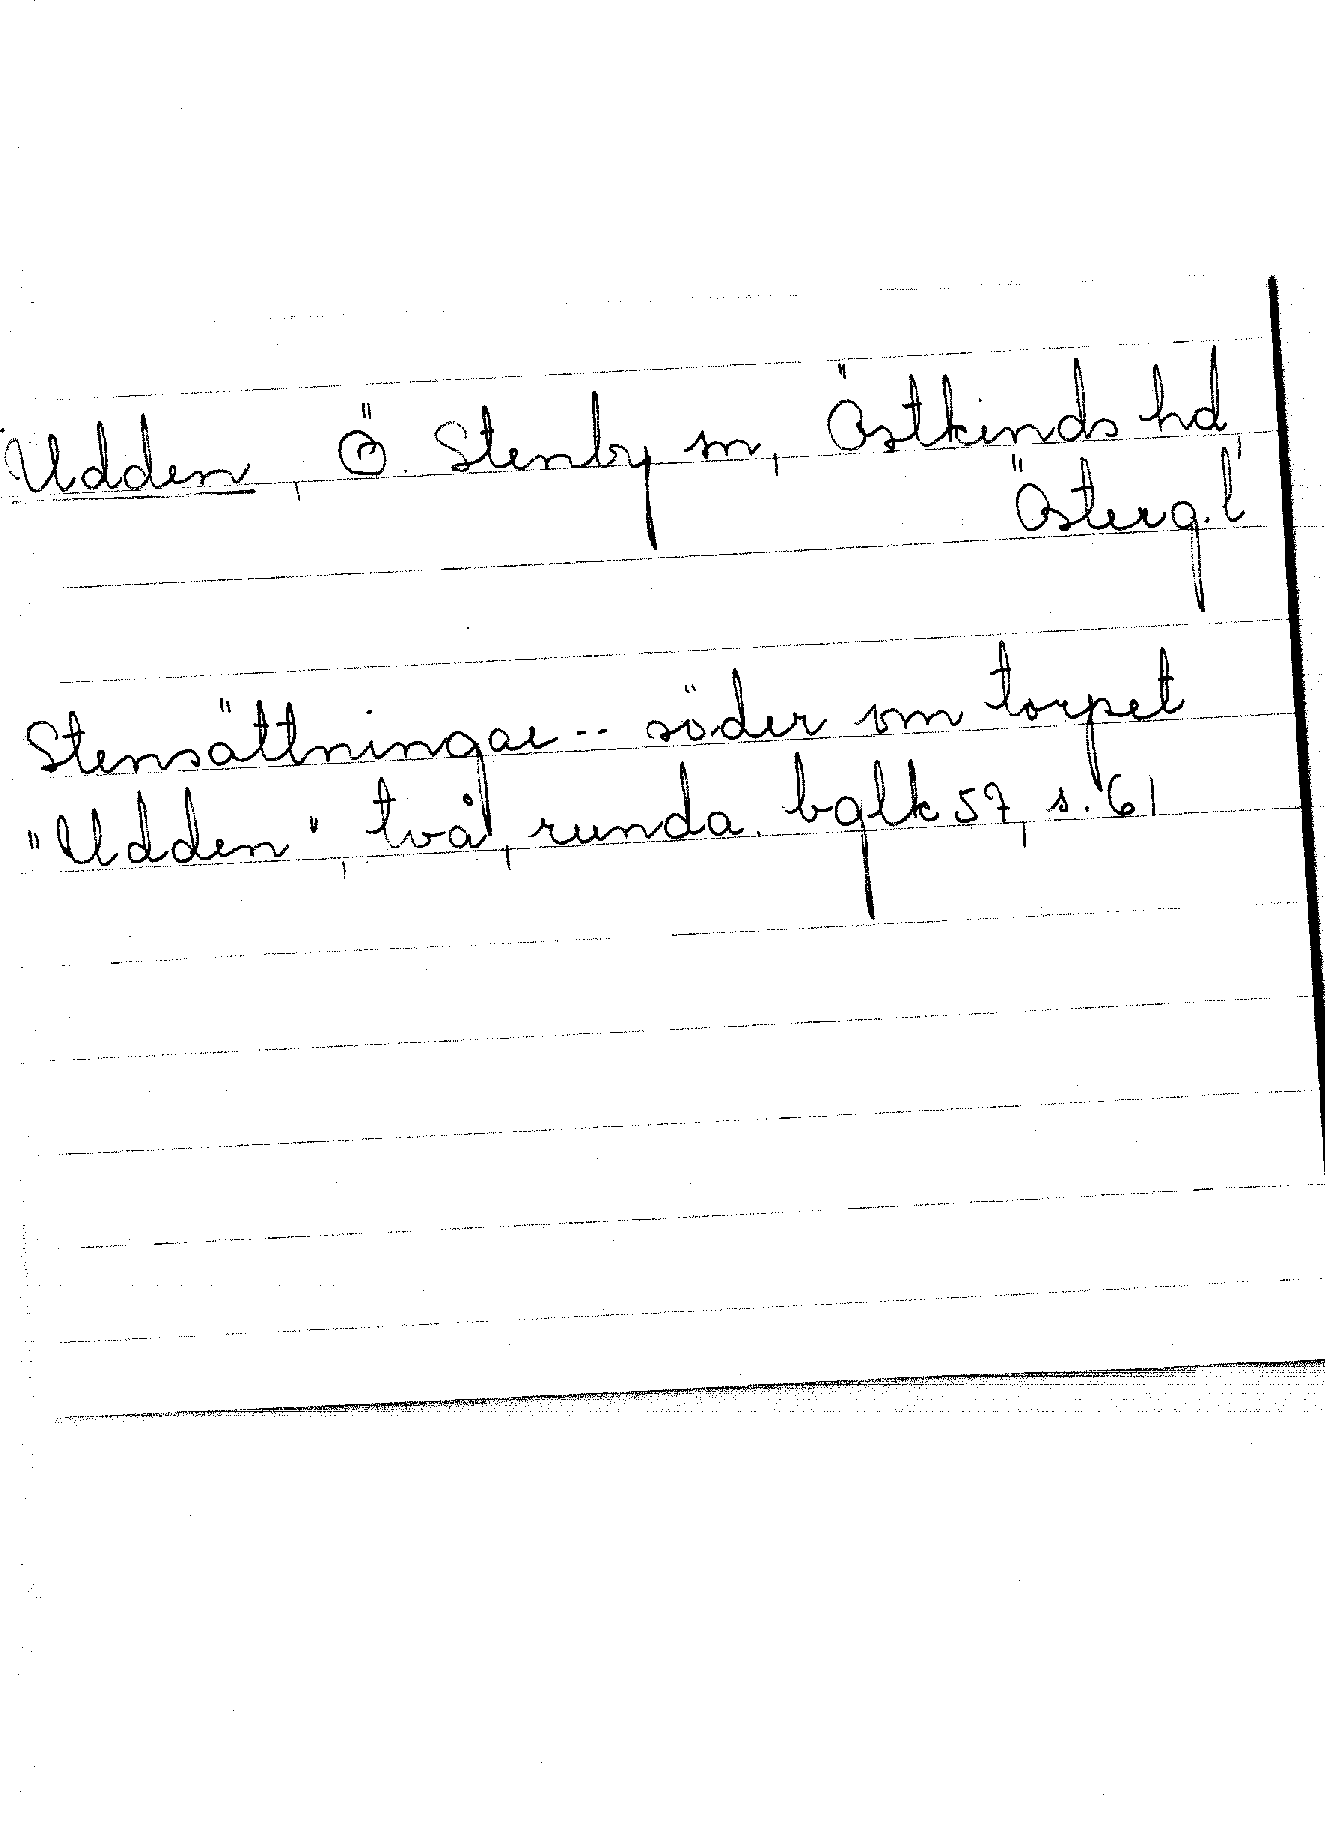 Udden, Ö. Stenby sn, Östkinds hd,
Österg. l
Stensättningar -- söder om torpet
"Udden", två, runda. bglk 57, s. 61